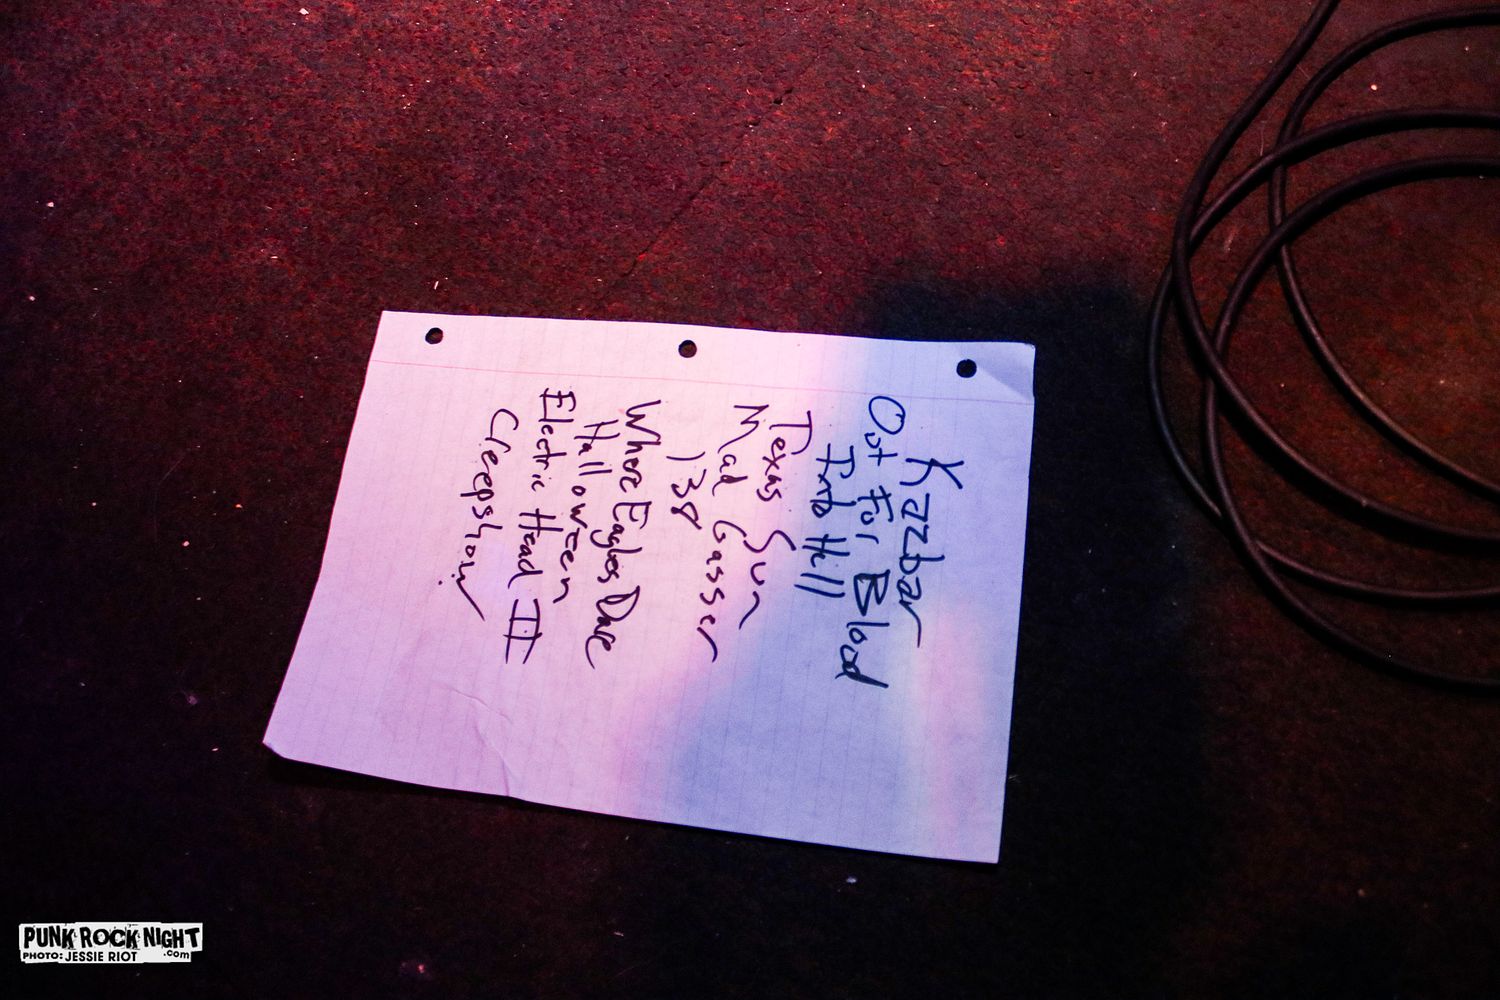 Kazbar
Out For Blood
Into Hell
Texas Sun
Mad Gasser
138
Where Eagles Dare
Halloween
Electric Head II
Creepshow
PUNK ROCK NIGHT
.com
PHOTO: JESSIE RIOT